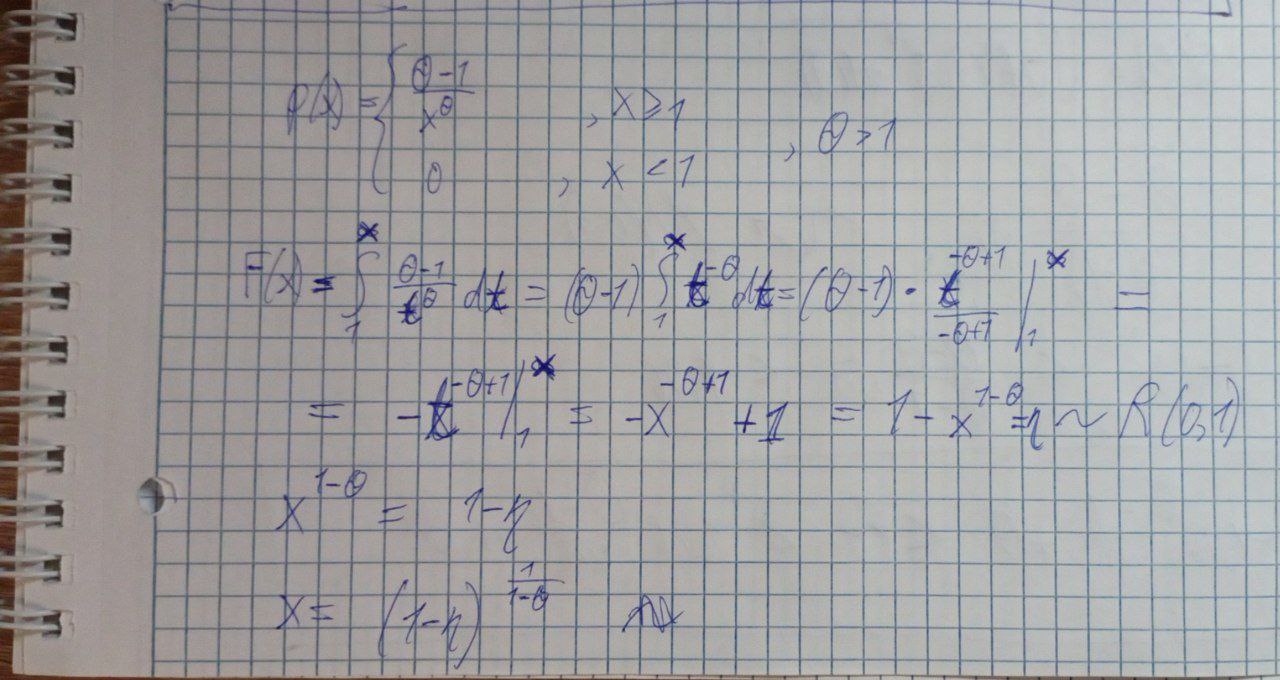 p(x) = { (θ-1)/x^θ , x ≥ 1
0 , x < 1 , θ > 1
F(x) = ∫_1^x (θ-1)/t^θ dt = (θ-1) ∫_1^x t^{-θ} dt = (θ-1) · t^{-θ+1}/(-θ+1) |_1^x =
= -t^{-θ+1} |_1^x = -x^{-θ+1} + 1 = 1 - x^{1-θ} = η ~ R(0,1)
x^{1-θ} = 1-η
x = (1-η)^{1/(1-θ)}